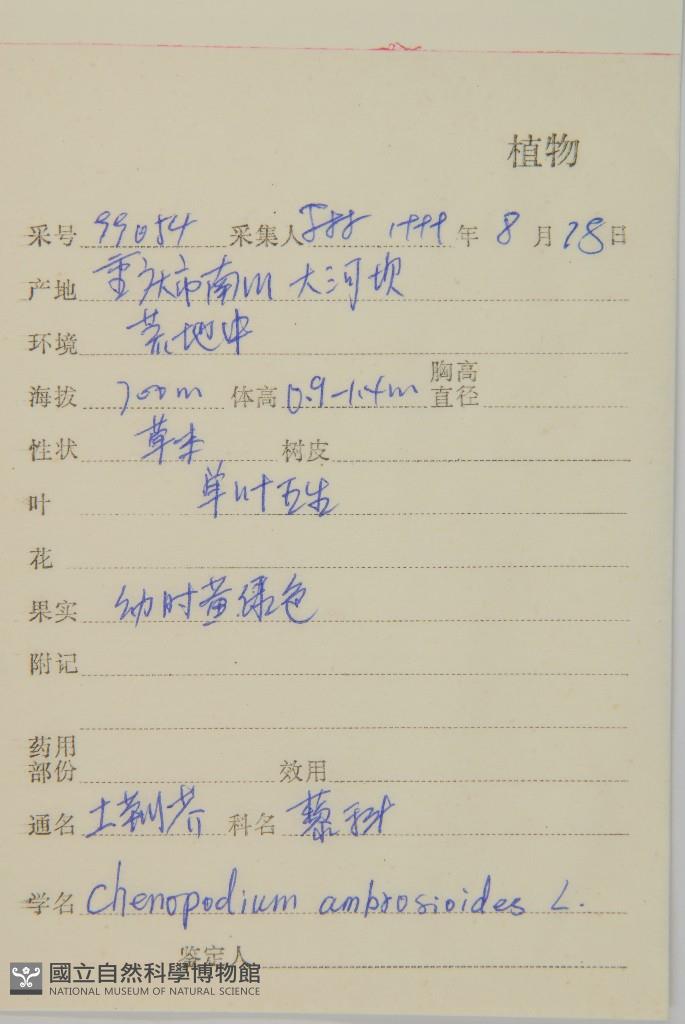 植物
采号 99054 采集人 1999 年 8 月 28 日
产地 重庆市南川 大河坝
环境 荒地中
海拔 700m 体高 0.9-1.4m 胸高直径
性状 草本 树皮
叶 单叶互生
花
果实 幼时黄绿色
附记
药用部份 效用
通名 土荆芥 科名 藜科
学名 Chenopodium ambrosioides L.
鉴定人
國立自然科學博物館
NATIONAL MUSEUM OF NATURAL SCIENCE